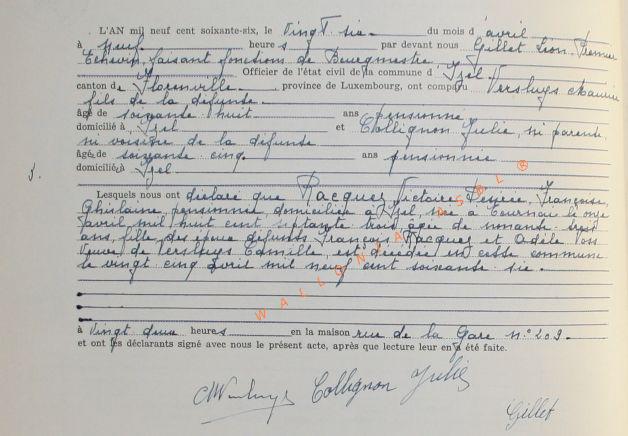 L'AN mil neuf cent soixante-six, le Vingt six du mois d'avril
à neuf heure s par devant nous Gillet Léon, Premier
Echevin, faisant fonctions de Bourgmestre,
Officier de l'état civil de la commune d'Izel
canton de Florenville province de Luxembourg, ont comparu Versluys Maurice
fils de la défunte
âgé de soixante huit ans pensionné
domicilié à Izel et Collignon Julie, ni parente
ni voisine de la défunte
âgée de soixante cinq ans pensionnée
domicilié à Izel
Lesquels nous ont déclaré que Pacques Victoire, Désirée, Françoise,
Ghislaine, pensionnée, domiciliée à Izel, née à Tournau le onze
avril mil huit cent septante trois, âgée de nonante trois
ans, fille des époux défunts François Pacques et Adèle
Veuve de Versluys Camille, est décédée en cette commune
le vingt cinq avril mil neuf cent soixante six.
à Vingt deux heures en la maison rue de la Gare n° 209.
et ont les déclarants signé avec nous le présent acte, après que lecture leur en a été faite.
Collignon Julie
Gillet
WALLONIA ASBL ®